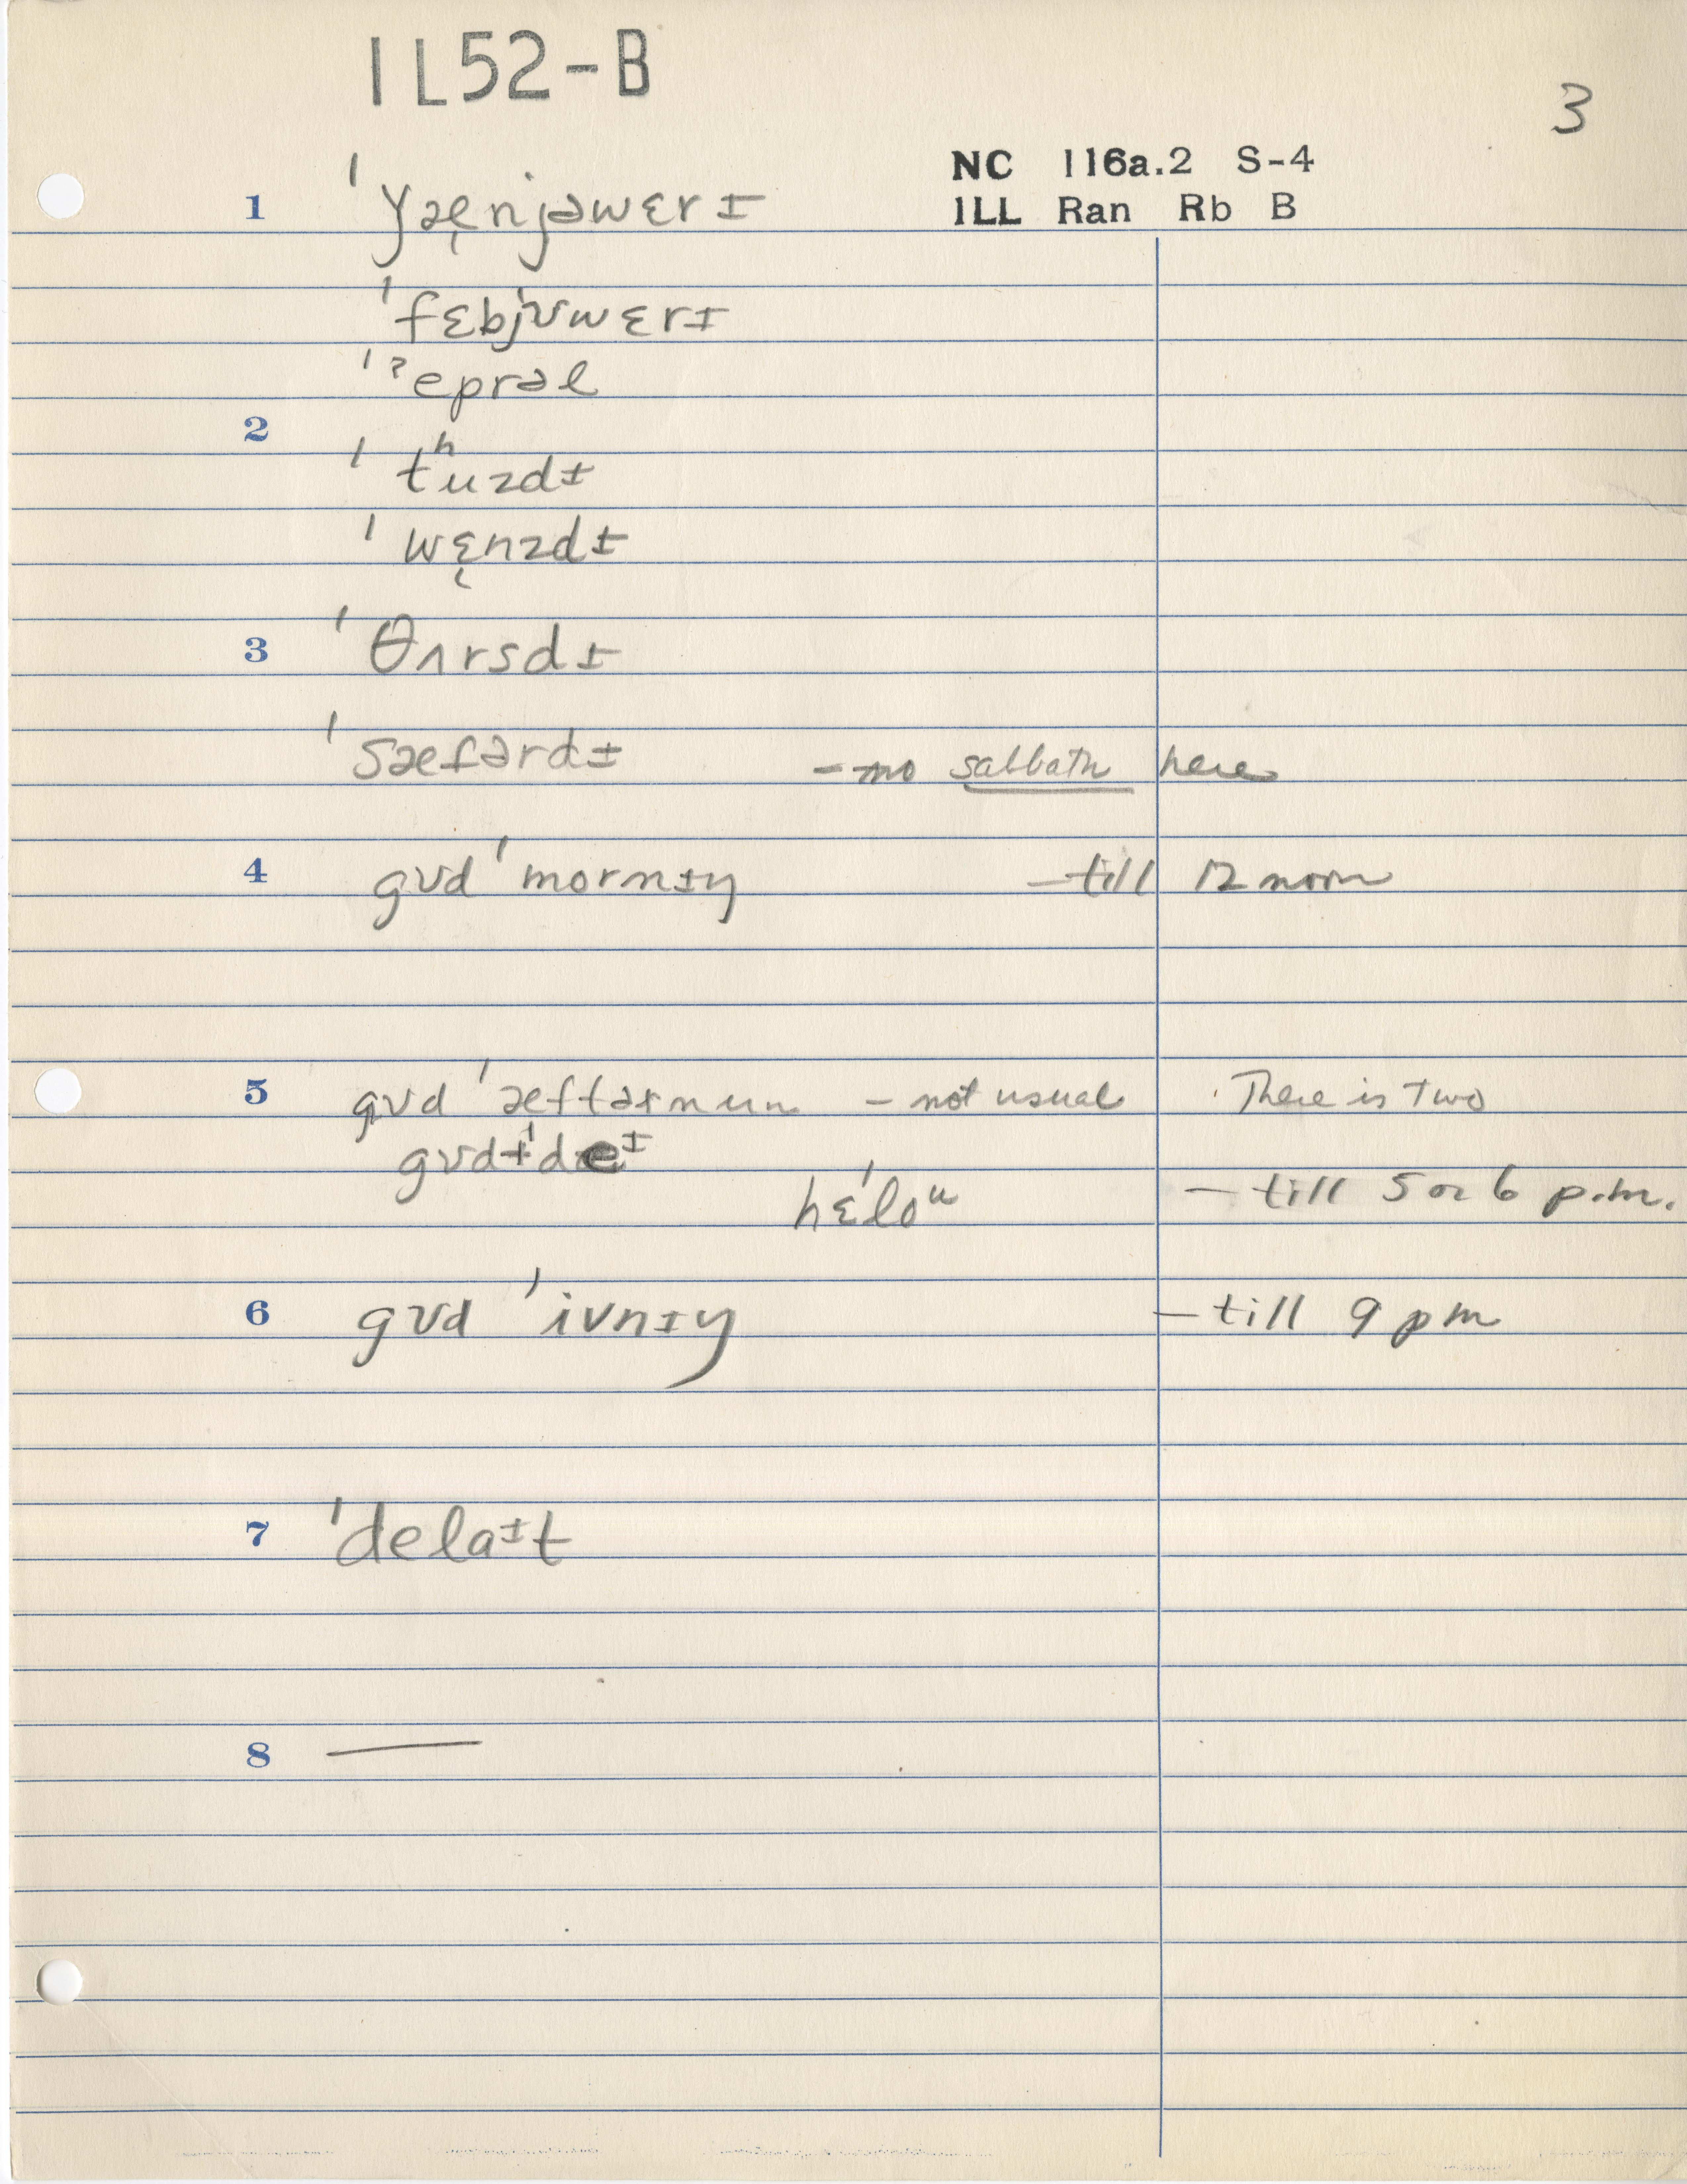 IL52-B
3
NC 116a.2 S-4
ILL Ran Rb B
1 ˈɏæ̨njəwɛrɪ
ˈfɛbjʊwɛrɪ
ˈˀeprəl
2 ˈtʰuzdɪ
ˈwɛ̨nzdɪ
3 ˈθʌrsdɪ
ˈsæfərdɪ - no sabbath here
4 gʊd ˈmornɪŋ - till 12 noon
5 gʊd ˈæftərnun - not usual There is two
gʊdɪˈdeɪ
hɛˈloᵘ - till 5 or 6 p.m.
6 gʊd ˈivnɪŋ - till 9 pm
7 ˈdelaɪt
8 —